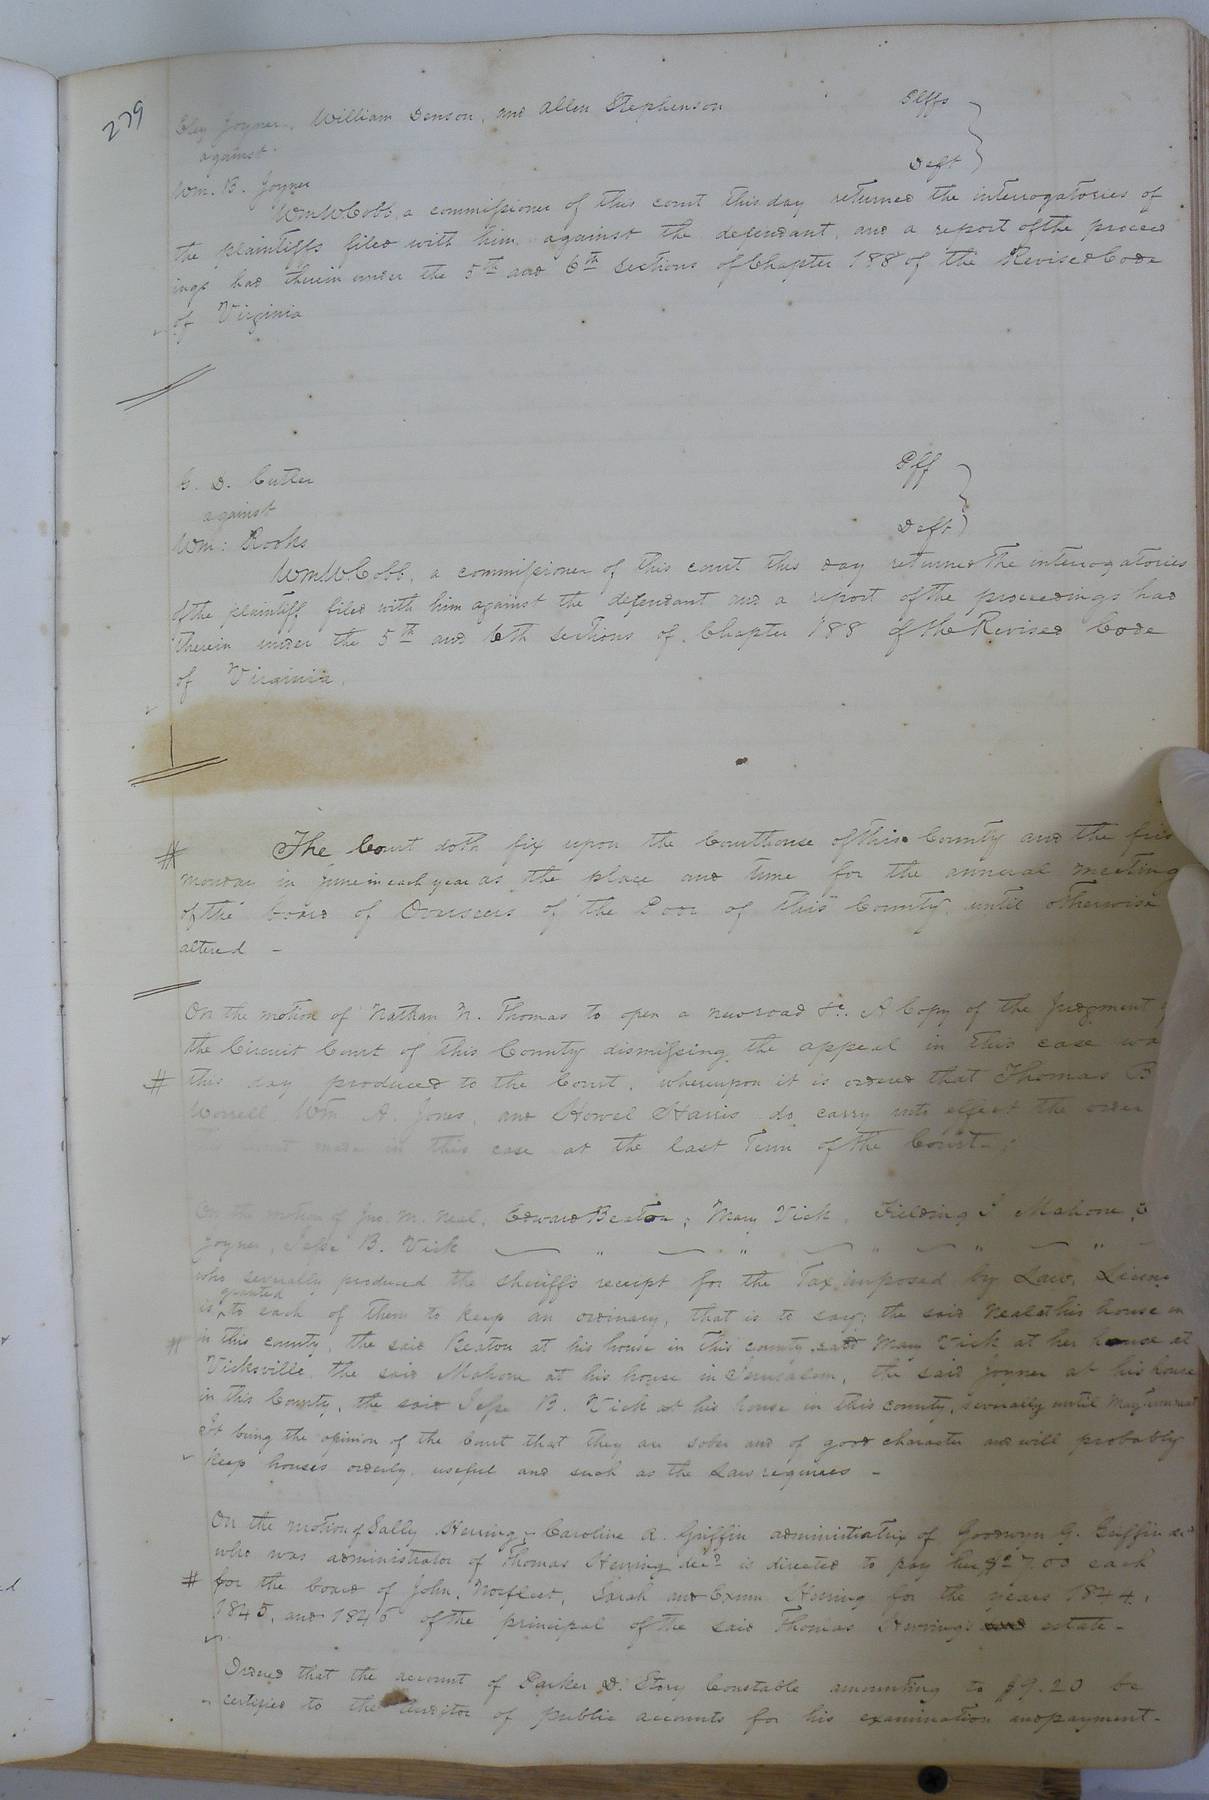 279
Eley Joyner, William Denson, and Allen Stephenson Plffs
against
Wm. B. Joyner Deft
WmWCobb, a commissioner of this court this day returned the interrogatories of
the plaintiffs filed with him against the defendant, and a report of the proceed
ings had therein under the 5th and 6th sections of Chapter 188 of the Revised Code
of Virginia
G. D. Cutler Plff
against
Wm: Rooks Deft
WmWCobb, a commissioner of this court this day returned the interrogatories
of the plaintiff filed with him against the defendant and a report of the proceedings had
therein under the 5th and 6th sections of Chapter 188 of the Revised Code
of Virginia.
# The Court doth fix upon the Courthouse of this County and the
monday in June in each year as the place and time for the annual meeting
of the board of Overseers of the Poor of this County, until otherwise
altered -
On the motion of Nathan N. Thomas to open a new road &c. A Copy of the Judgment
the Circuit Court of this County dismissing the appeal in this case
# this day produced to the Court, whereupon it is ordered that Thomas B
Worrell, Wm A. Jones, and Howel Harris do carry into effect the order
made in this case at the last Term of the Court -
On the motion of Jno. M. Neal, Edward Beaton, Mary Vick, Fielding J Mahone,
Joyner, Jesse B. Vick
who severally produced the sheriff's receipt for the Tax imposed by Law,
granted
is ^ to each of them to keep an ordinary, that is to say; the said Neal at his house in
# in this county, the said Beaton at his house in this county, said Mary Vick at her house at
Vicksville, the said Mahone at his house in Jerusalem, the said Joyner at his house
in this County, the said Jesse B. Vick at his house in this county, severally until May Term next
It being the opinion of the Court that they are sober and of good character and will probably
keep houses orderly, useful and such as the Law requires -
On the motion of Sally Herring, Caroline A. Griffin administratrix of Goodwyn G. Griffin decd
who was administrator of Thomas Herring decd is directed to pay her $27.00 each
# for the board of John, Norfleet, Sarah and Exum Herring for the years 1844,
1845, and 1846 of the principal of the said Thomas Herring's and estate -
Ordered that the account of Parker D. Story Constable amounting to $9.20 be
certified to the Auditor of public accounts for his examination and payment -